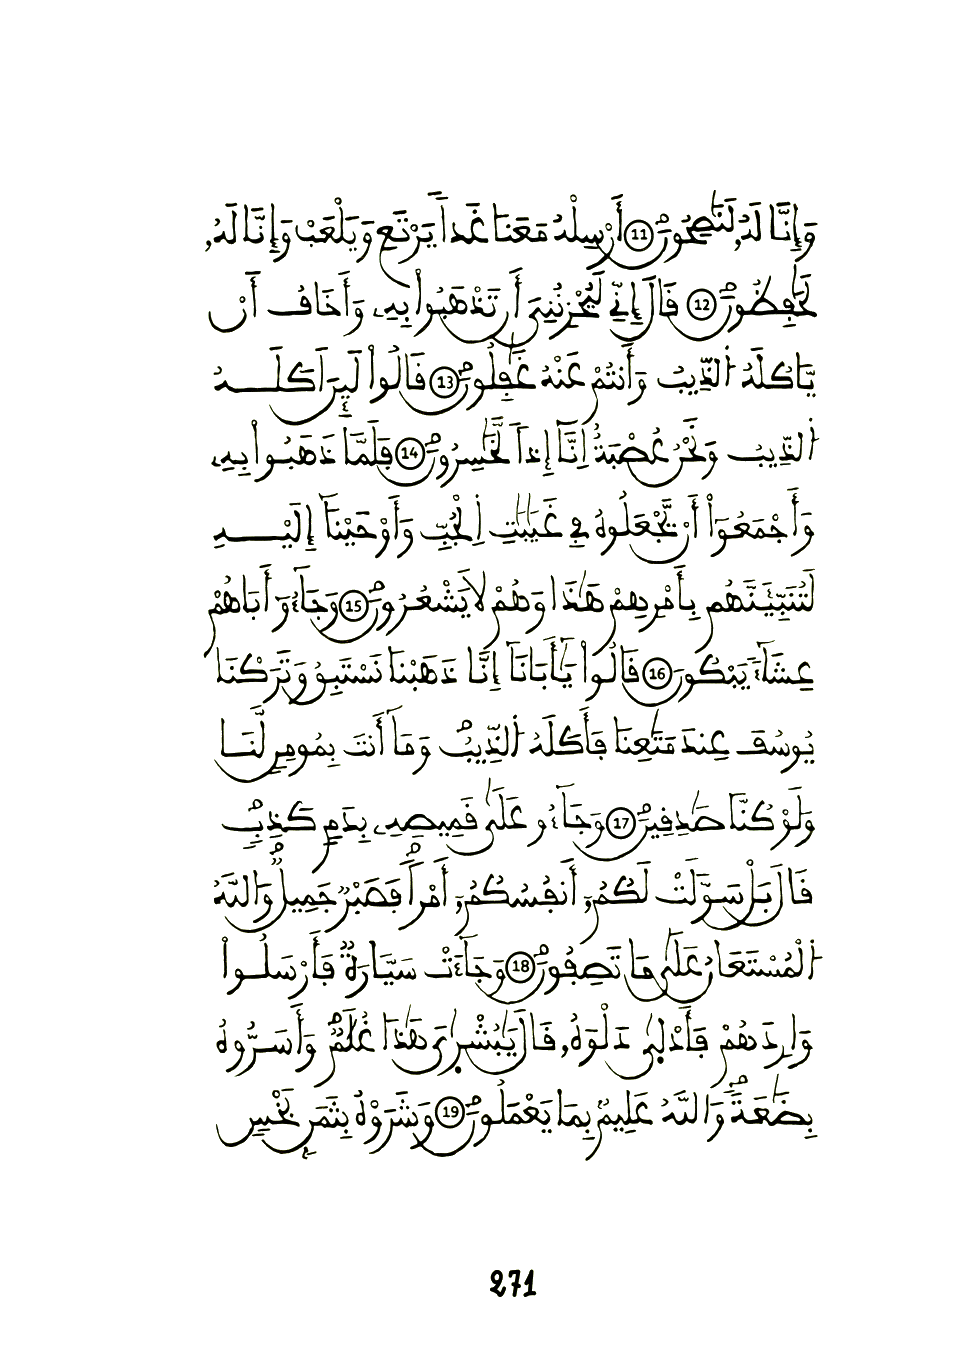 وَإِنَّا لَهُۥ لَنَٰصِحُونَ 11 أَرْسِلْهُ مَعَنَا غَداٗ يَرْتَعِ وَيَلْعَبْ وَإِنَّا لَهُۥ
لَحَٰفِظُونَ 12 قَالَ إِنِّے لَيُحْزِنُنِےٓ أَن تَذْهَبُواْ بِهِۦ وَأَخَافُ أَنْ
يَّاكُلَهُ اُ۬لذِّيبُ وَأَنتُمْ عَنْهُ غَٰفِلُونَ 13 قَالُواْ لَئِنَ اَكَلَهُ
اُ۬لذِّيبُ وَنَحْنُ عُصْبَةٌ اِنَّآ إِذاٗ لَّخَٰسِرُونَ 14 فَلَمَّا ذَهَبُواْ بِهِۦ
وَأَجْمَعُوٓاْ أَنْ يَّجْعَلُوهُ فِے غَيَٰبَٰتِ اِ۬لْجُبِّ وَأَوْحَيْنَآ إِلَيْهِ
لَتُنَبِّئَنَّهُم بِأَمْرِهِمْ هَٰذَا وَهُمْ لَا يَشْعُرُونَ 15 وَجَآءُوٓ أَبَاهُمْ
عِشَآءٗ يَبْكُونَ 16 قَالُواْ يَٰٓأَبَانَآ إِنَّا ذَهَبْنَا نَسْتَبِقُ وَتَرَكْنَا
يُوسُفَ عِندَ مَتَٰعِنَا فَأَكَلَهُ اُ۬لذِّيبُ وَمَآ أَنتَ بِمُومِنٖ لَّنَا
وَلَوْ كُنَّا صَٰدِقِينَ 17 وَجَآءُو عَلَىٰ قَمِيصِهِۦ بِدَمٖ كَذِبٖ
قَالَ بَلْ سَوَّلَتْ لَكُمُۥٓ أَنفُسُكُمُۥٓ أَمْراٗ فَصَبْرٞ جَمِيلٞ وَاللَّهُ
اُ۬لْمُسْتَعَانُ عَلَىٰ مَا تَصِفُونَ 18 وَجَآءَتْ سَيَّارَةٞ فَأَرْسَلُواْ
وَارِدَهُمْ فَأَدْلَىٰ دَلْوَهُۥ قَالَ يَٰبُشْرَٰىَ هَٰذَا غُلَٰمٞ وَأَسَرُّوهُ
بِضَٰعَةٗ وَاللَّهُ عَلِيمُۢ بِمَا يَعْمَلُونَ 19 وَشَرَوْهُ بِثَمَنِۢ بَخْسٖ
271